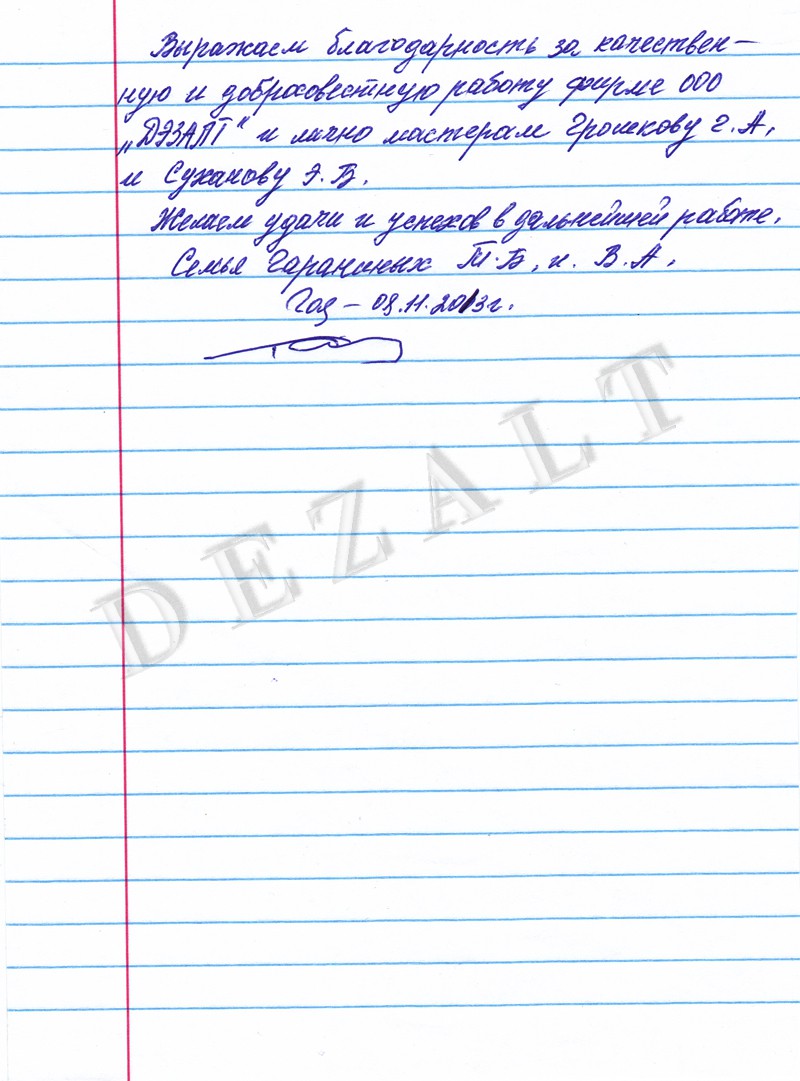 Выражаем благодарность за качествен-
ную и добросовестную работу фирме ООО
„ДЭЗАЛТ" и лично мастерам Грошкову Г.А.
и Суханову Э.В.
Желаем удачи и успехов в дальнейшей работе.
Семья Гараниных Т.Б. и. В.А.
09.11.2013г.
DEZALT